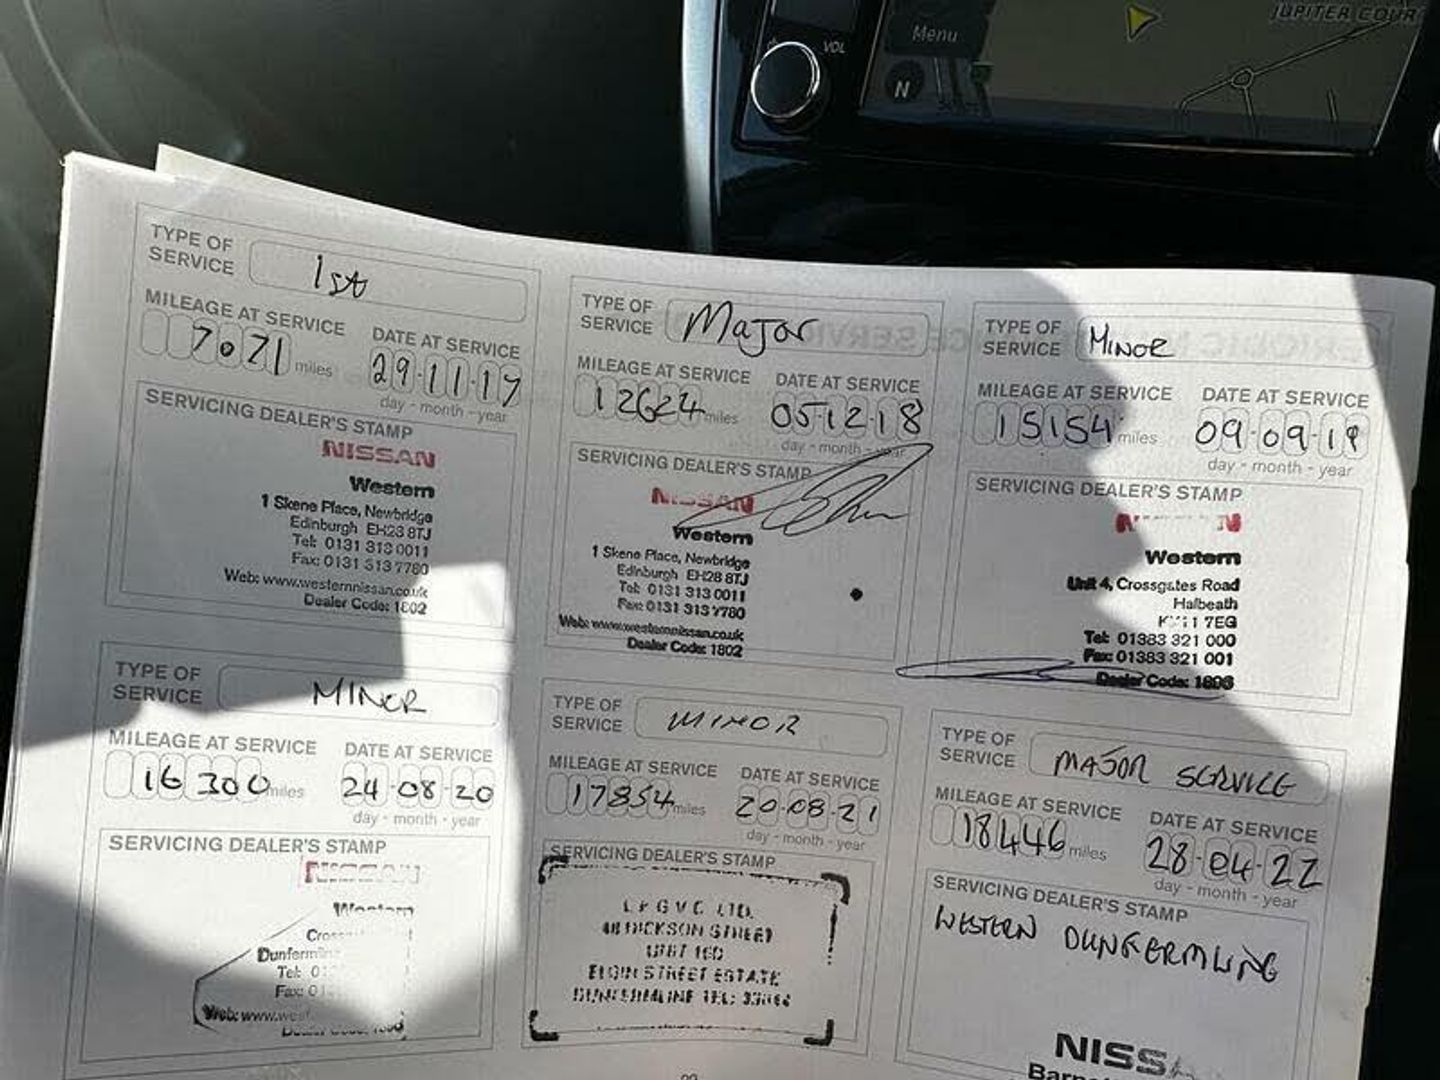 VOL
Menu
N
JUPITER COUR
TYPE OF
SERVICE
1st
MILEAGE AT SERVICE
7071 miles
DATE AT SERVICE
29-11-17
day - month - year
SERVICING DEALER'S STAMP
NISSAN
Western
1 Skene Place, Newbridge
Edinburgh EH28 8TJ
Tel: 0131 313 0011
Fax: 0131 313 7780
Web: www.westernnissan.co.uk
Dealer Code: 1802
TYPE OF
SERVICE
Major
MILEAGE AT SERVICE
12624 miles
DATE AT SERVICE
05-12-18
day - month - year
SERVICING DEALER'S STAMP
NISSAN
Western
1 Skene Place, Newbridge
Edinburgh EH28 8TJ
Tel: 0131 313 0011
Fax: 0131 313 7780
Web: www.westernnissan.co.uk
Dealer Code: 1802
TYPE OF
SERVICE
MINOR
MILEAGE AT SERVICE
15154 miles
DATE AT SERVICE
09-09-19
day - month - year
SERVICING DEALER'S STAMP
Western
Unit 4, Crossgates Road
Halbeath
7EG
Tel: 01383 321 000
Fax: 01383 321 001
Dealer Code: 1806
TYPE OF
SERVICE
MINOR
MILEAGE AT SERVICE
16300 miles
DATE AT SERVICE
24-08-20
day - month - year
SERVICING DEALER'S STAMP
NISSAN
Western
Tel:
Fax:
Web:
TYPE OF
SERVICE
MINOR
MILEAGE AT SERVICE
17854 miles
DATE AT SERVICE
20-08-21
day - month - year
SERVICING DEALER'S STAMP
LTD.
DICKSON STREET
ELGIN STREET ESTATE
DUNFERMLINE TEL:
TYPE OF
SERVICE
MAJOR SERVICE
MILEAGE AT SERVICE
18446 miles
DATE AT SERVICE
28-04-22
day - month - year
SERVICING DEALER'S STAMP
WESTERN DUNFERMLING
NISS
Barn